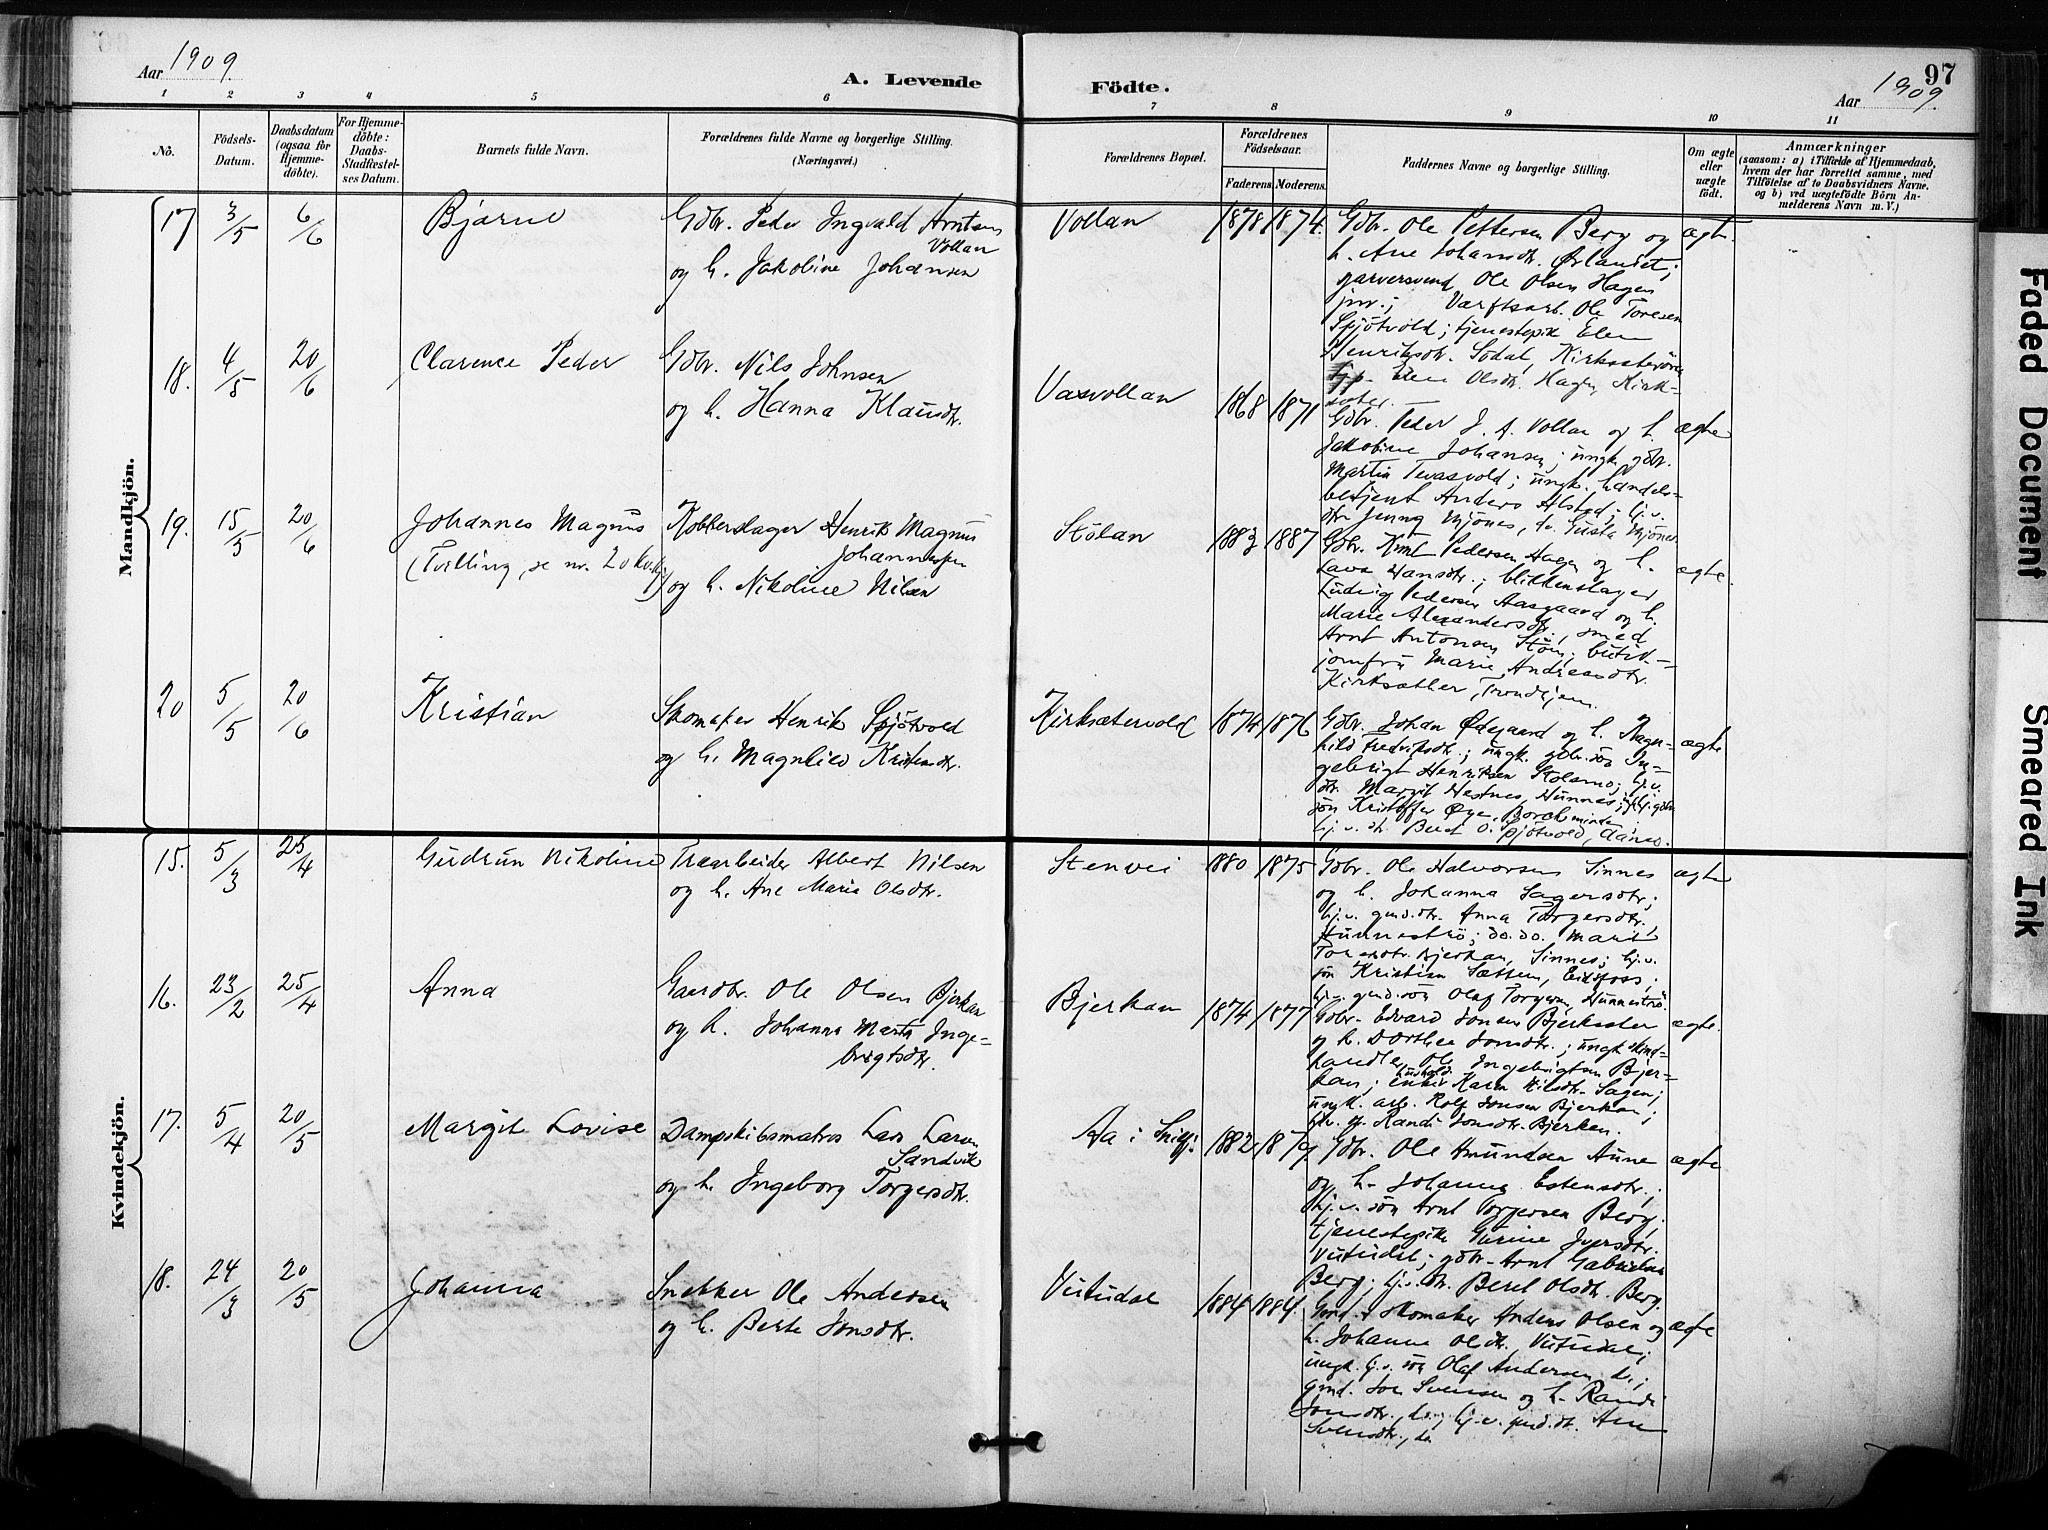 Aar 1909.
A. Levende
Födte.
97
Aar 1909.
1 2 3 4 5 6 7 8 9 10 11
No.
Födsels-
Datum.
Daabsdatum
(ogsaa for
Hjemme-
döbte).
For Hjemme-
döbte:
Daabs-
Stadfæstel-
ses Datum.
Barnets fulde Navn.
Forældrenes fulde Navne og borgerlige Stilling.
(Næringsvei.)
Forældrenes Bopæl.
Forældrenes
Födselsaar.
Faderens. Moderens.
Faddernes Navne og borgerlige Stilling.
Om ægte
eller
uægte
født.
Anmærkninger
(saasom: a) i Tilfælde af Hjemmedaab,
hvem der har forrettet samme, med
Tilföielse af to Daabsvidners Navne.
og b) ved uægtefödte Börn An-
melderens Navn m. V.)
Mandkjön.
17 3/5 6/6 Bjarne
Gdbr. Peder Ingvald Arntsen
Vollan
og h. Jakobine Johansen
Vollan 1878 1874.
Gdbr. Ole Pettersen Berg og
h. Ane Johansdtr. Ørlandet;
garversvend Ole Olsen Hagen
jnr.; Værftsarb. Ole Toresen
Spjötvold; tjenestepik Elen
Henriksdtr. Södal, Kirksæterören
Elen Olsdtr. Hagen, Kirk-
sæter.
ægte.
18. 4/5 20/6 Clarence Peder
Gdbr. Nils Johnsen
og h. Hanna Klausdtr.
Vasvollan 1868 1871
Gdbr. Peder J. A. Vollan og h.
Jakobine Johansen; ungk. gdbr.
Martin Tevasvold; ungk. handels-
betjent Anders Alstad; hj.v.
dtr. Jenny Mjönes, do. Gusta Mjönes.
ægte
19. 15/5 20/6 Johannes Magnus
(Tvilling, se nr. 20 kvkj.)
Kobberslager Henrik Magnus
Johannesen
og h. Nikoline Nilsen
Stölan 1883 1887
Gdbr. Knut Pedersen Hagen og h.
Lava Hansdtr.; blikkenslager
Ludvig Pedersen Aasgaard og h.
Marie Alexandersdtr., smed
Arnt Antonsen Stöin; butik-
jomfru Marie Andreasdtr.
Kirksæther, Trondhjem.
ægte.
20 5/5 20/6 Kristian
Skomaker Henrik Spjötvold
og h. Magnhild Kristensdtr.
Kirksætervold 1874 1876
Gdbr. Johan Ødegaard og h. Ragn-
hild Fredriksdtr.; ungk. gdbr.sön In-
gebrigt Henriksen Stolsmo; hj.v.
dtr. Margit Hestnes, Hunnes;
sön Kristoffer Øye,
hj.v. dtr. Beret O. Spjötvold,
ægte
Kvindekjön.
15. 5/3 25/4 Gudrun Nikoline
Træarbeider Albert Nilsen
og h. Ane Marie Olsdtr.
Stenvei 1880 1875
Gdbr. Ole Halvorsen Sinnes
og h. Johanna Sagersdtr;
hj.v. gmd.dtr. Anna Torgersdtr.
Hunneströ; do. do. Marit
Toresdtr. Bjerkan, Sinnes; hj.v.
sön Kristian Sættem, Eidsfoss;
hj.v. gmd.sön Olaf Torgersen, Hunneströ.
ægte
16. 23/2 25/4 Anna
Gaardbr. Ole Olsen Bjerkan
og h. Johanna Marta Inge-
brigtsdtr.
Bjerkan 1874 1877
Gdbr. Edvard Jonsen Bjerksæter
og h. Dorthea Jonsdtr.; ungk. skind-
handler Ole Ingebrigtsen Bjer-
kan; enke Karen Nilsdtr. Sagen;
ungk. arb. Rolf Jonsen Bjerkan;
Randi Jonsdtr. Bjerkan.
ægte.
17. 5/4 20/5 Margit Lovise
Dampskibsmatros Lars Larsen
Sandvik
og h. Ingeborg Torgersdtr.
Aa i 1882 1879
Gdbr. Ole Amundsen Aune
og h. Johanna Estensdtr.;
hj.v. sön Arnt Torgersen Berg;
tjenestepike Gurine Iversdtr.
Vutudal; gdbr. Arnt Gabrielsen
Berg; hj.v. dtr. Beret Olsdtr. Berg.
ægte
18. 24/3 20/5 Johanna
Snekker Ole Andersen
og h. Berte Jonsdtr.
Vutudal 1884 1884.
Gmd. & skomaker Anders Olsen og
h. Johanne Olsdtr. Vutudal;
ungk. hj.v. sön Olaf Andersen do.;
gmd. Jon Svensen og h. Randi
Jonsdtr., do.; hj.v. gmd.dt. Ane
Svensdtr., do.
ægte
Faded Document
Smeared Ink